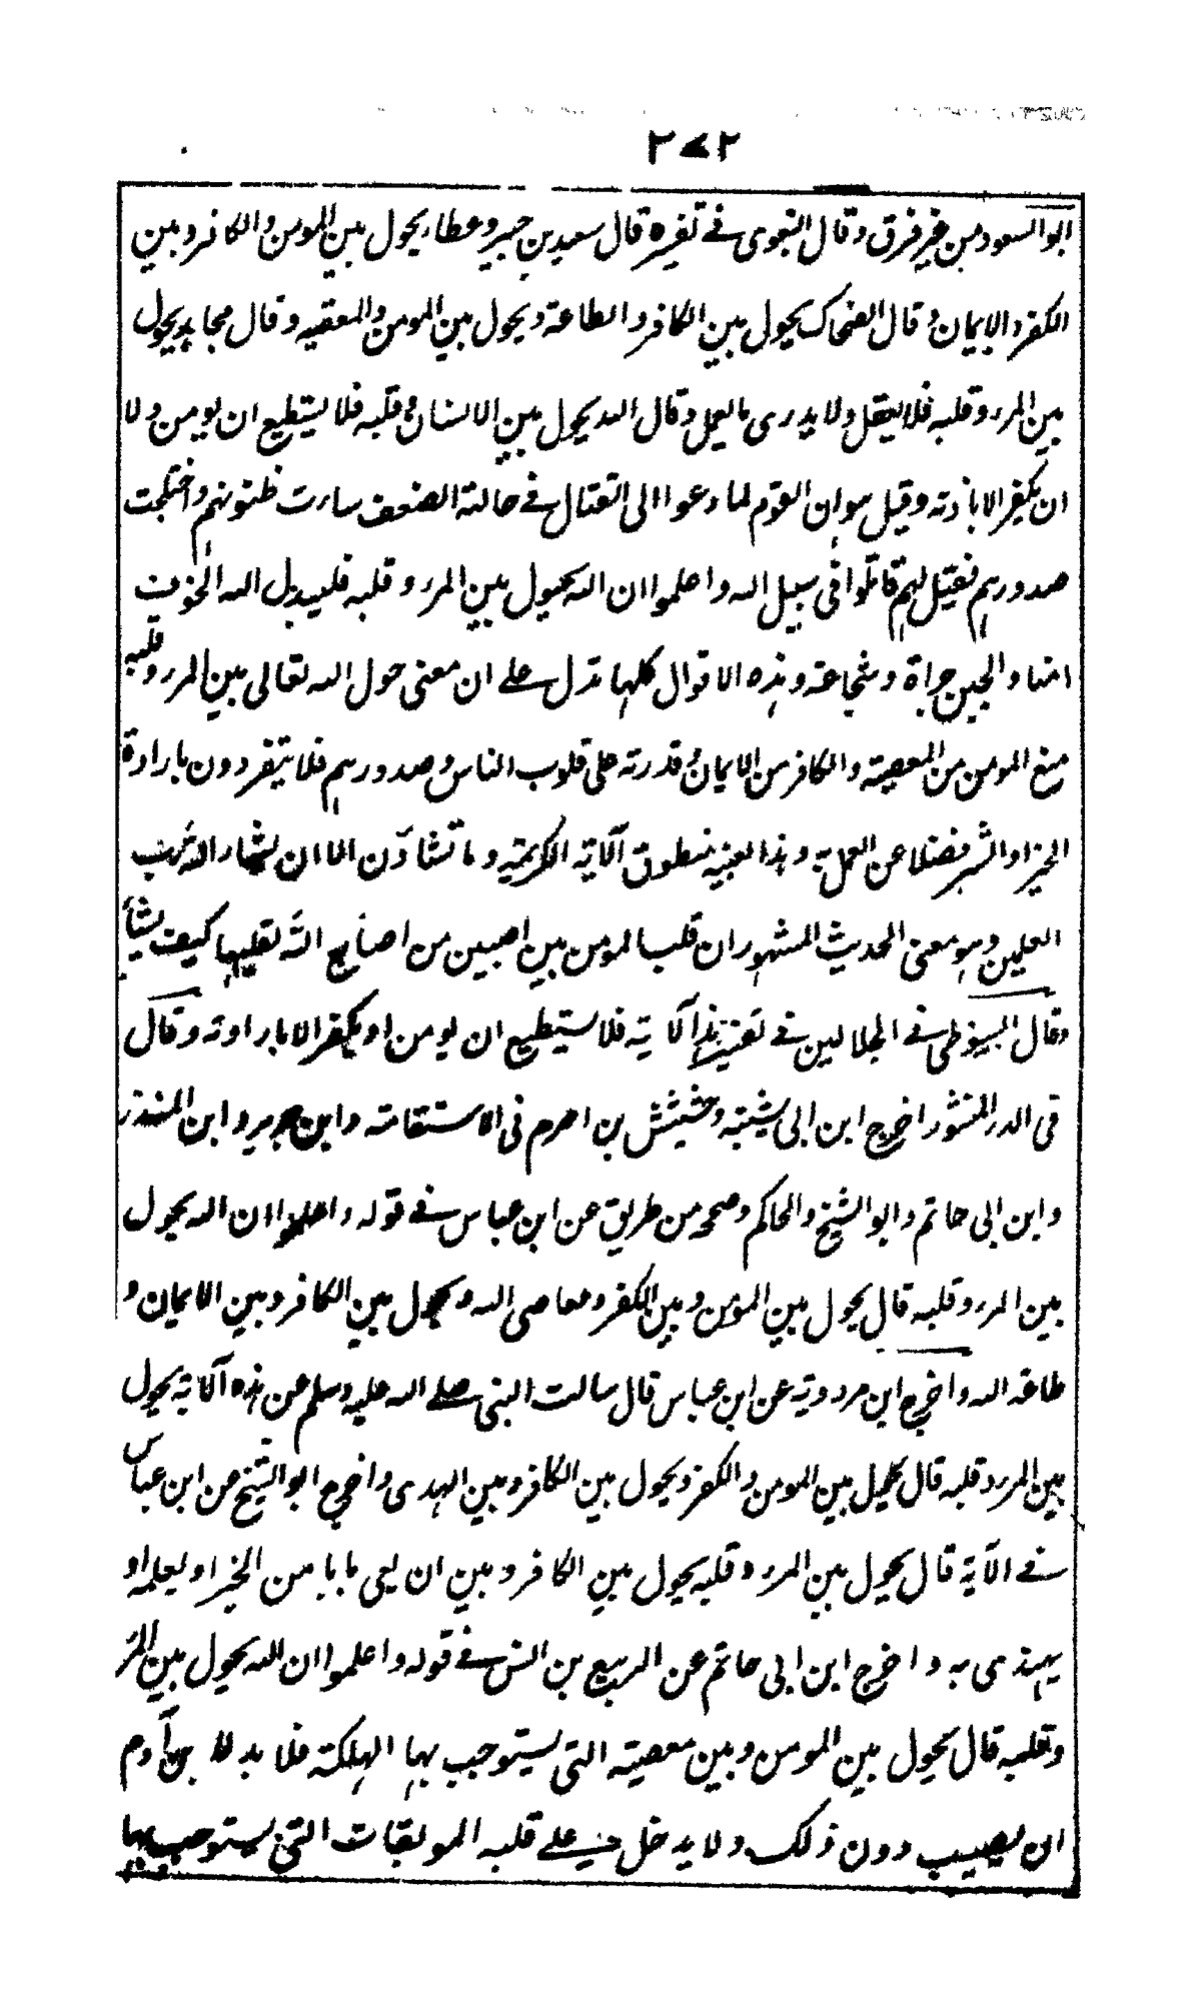 ٢٧٢
ابو السعود من غير فرق وقال البغوى فے تفسيره قال سعيد بن جبير وعطاء يحول بين المومن والكافر وبين
الكفر والايمان وقال الضحاك يحول بين الكافر والطاعة ويحول بين المومن والمعصية وقال مجاهد يحول
بين المرء وقلبه فلا يعقل ولا يدرى ما يعمل وقال السدى يحول بين الانسان وقلبه فلا يستطيع ان يومن ولا
ان يكفر الا باذنه وقيل هو ان القوم لما دعوا الى القتال فے حالة الضعف ساءت ظنونهم واختلجت
صدورهم فقيل لهم قاتلوا فى سبيل الله واعلموا ان الله يحول بين المرء وقلبه فليبدل الله الخوف
امنا والجبن جراة وشجاعة وهذه الاقوال كلها تدل علے ان معنى حول الله تعالى بين المرء وقلبه
منع المومن من المعصية والكافر من الايمان وقدرته على قلوب الناس وصدورهم فلا يتفردون بارادة
الخير او الشر فضلا عن العمل به وهذا بعينه منطوق آلاية الكريمة وما تشاؤن الا ان يشاء الله رب
العلمين وهو معنى الحديث المشهور ان قلب المومن بين اصبعين من اصابع الله يقلبها كيف يشأ
وقال السيوطى فے الجلالين فے تفسير هذا آلاية فلا يستطيع ان يومن او يكفر الا بارادته وقال
فى الدر المنثور اخرج ابن ابى شيبة وخشيش بن اصرم فى الاستقامة وابن جرير وابن المنذر
وابن ابى حاتم وابو الشيخ والحاكم وصححه من طريق عن ابن عباس فے قوله واعلموا ان الله يحول
بين المرء وقلبه قال يحول بين المؤمن وبين الكفر ومعاصى الله ويحول بين الكافر وبين الايمان و
طاعة الله واخرج ابن مردوية عن ابن عباس قال سالت النبى صلے الله عليه وسلم عن هذه آلاية يحول
بين المرء وقلبه قال يحول بين المومن والكفر ويحول بين الكافر وبين الهدى واخرج ابو الشيخ عن ابن عباس
فے الآية قال يحول بين المرء وقلبه يحول بين الكافر وبين ان يعى بابا من الخير او يعلمه او
يهتدى به واخرج ابن ابى حاتم عن الربيع بن انس فے قوله واعلموا ان الله يحول بين المرء
وقلبه قال يحول بين المومن وبين معصيته التى يستوجب بها الهلكة فلا بد لابن آدم
ان يصيب دون ذلك ولا يدخل علے قلبه الموبقات التى يستوجب بها